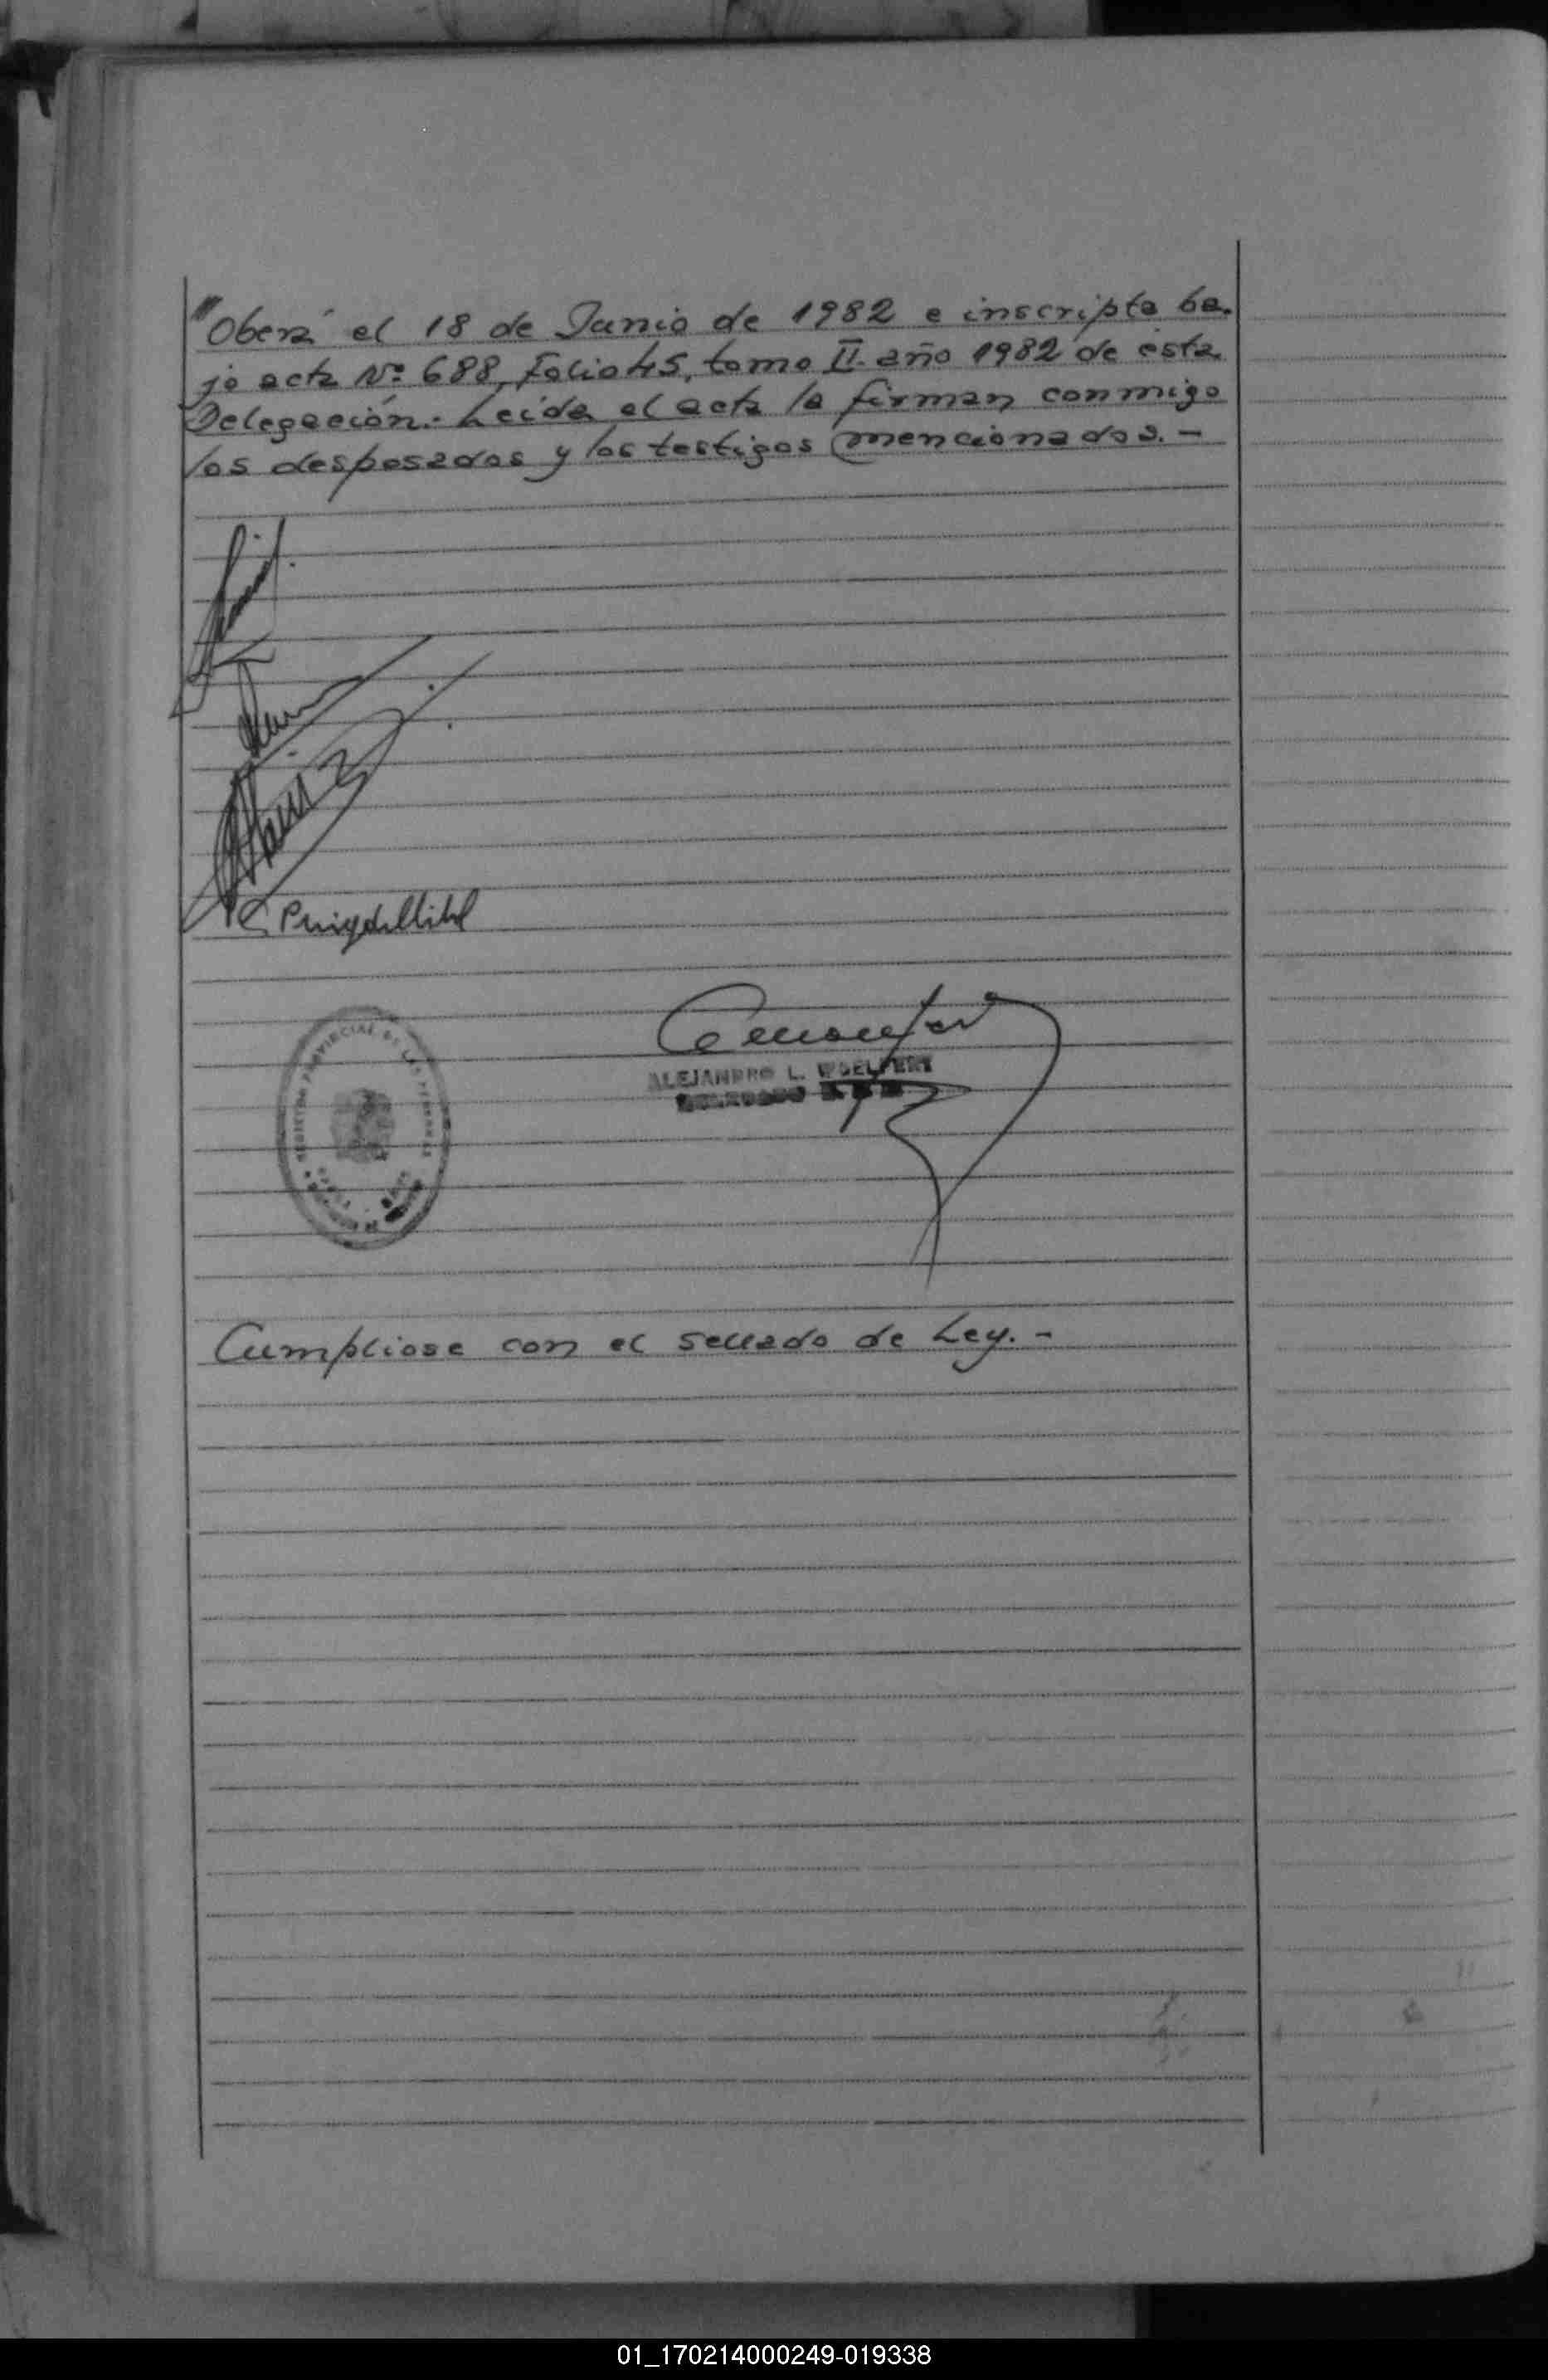 "Oberá el 18 de Junio de 1982 e inscripta ba-
jo acta Nº 688, Folio 45, tomo II. año 1982 de esta
Delegación.- Leída el acta la firman conmigo
los desposados y los testigos mencionados.-
ALEJANDRO L. WOELFERT
DELEGADO
Cumpliose con el sellado de Ley.-
01_170214000249-019338